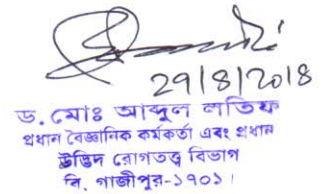 29/8/2018
ড. মোঃ আব্দুল লতিফ
প্রধান বৈজ্ঞানিক কর্মকর্তা এবং প্রধান
উদ্ভিদ রোগতত্ত্ব বিভাগ
বি, গাজীপুর-১৭০১।